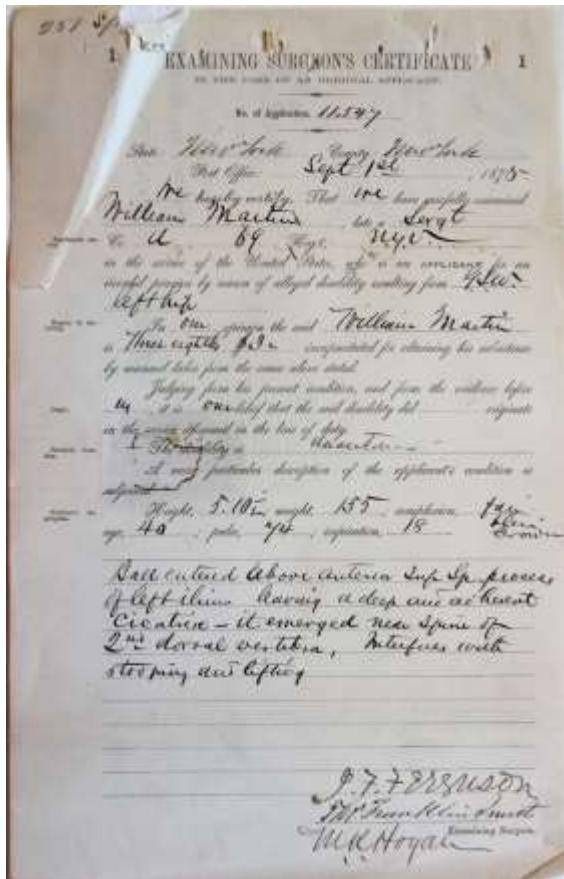 1 EXAMINING SURGEON'S CERTIFICATE 1
IN THE CASE OF AN ORIGINAL APPLICANT.
No. of Application, 11.547
State New York County New York
Post Office Sept 1st, 1875
We hereby certify, That we have carefully examined
William Martin, late a Sergt
Co. 69 Regt. N.Y.V.
in the service of the United States, who is an APPLICANT for an
invalid pension by reason of alleged disability resulting from G.S.W.
left hip
In our opinion the said William Martin
is Three eighths incapacitated for obtaining his subsistence
by manual labor from the cause above stated.
Judging from his present condition, and from the evidence before
us, it is our belief that the said disability did originate
in the service aforesaid in the line of duty.
The disability is
A more particular description of the applicant's condition is
subjoined
Height, 5.10½ weight, 155 complexion, fair
age, 40 pulse, 74 respiration, 18 brown
Ball entered above anterior Sup Sp. process
of left ilium leaving a deep and adherent
cicatrix - it emerged near spine of
2nd dorsal vertebra, Interferes with
stooping and lifting
J. F. Ferguson
Franklin Smith
M.K. Hogan
Examining Surgeon.